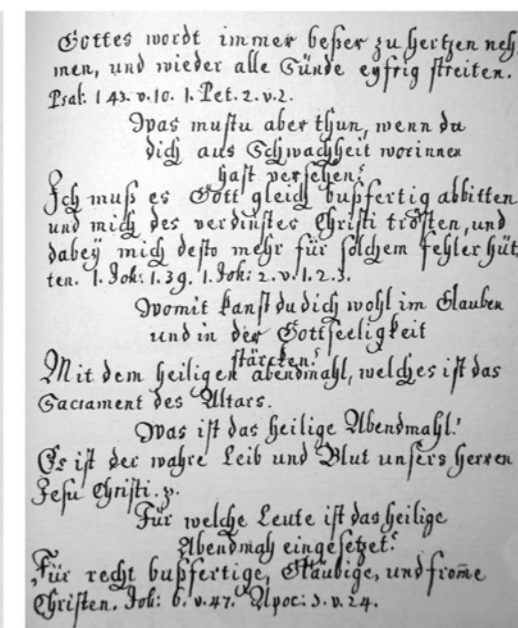 Gottes wordt immer beßer zu hertzen neh,
men, und wieder alle Sünde eyfrig streiten.
Psal: 143. v. 10. 1. Pet. 2. v. 2.
Was mustu aber thun, wenn du
dich aus Schwachheit worinnen
hast versehen?
Ich muß es Gott gleich bußfertig abbitten
und mich des verdinstes Christi trösten, und
dabeÿ mich desto mehr für solchem fehler hüt,
ten. 1. Joh: 1. 39. 1. Joh: 2. v. 1. 2. 3.
Womit kanst du dich wohl im Glauben
und in der Gottseeligkeit
stärcken?
Mit dem heiligen abendmahl, welches ist das
Sacrament des Altars.
Was ist das heilige Abendmahl?
Es ist der wahre Leib und Blut unsers herren
Jesu Christi. p.
Für welche Leute ist das heilige
Abendmah eingesetzet?
Für recht bußfertige, Gläubige, und from̅e
Christen. Joh: 6. v. 47. Apoc: 3. v. 24.